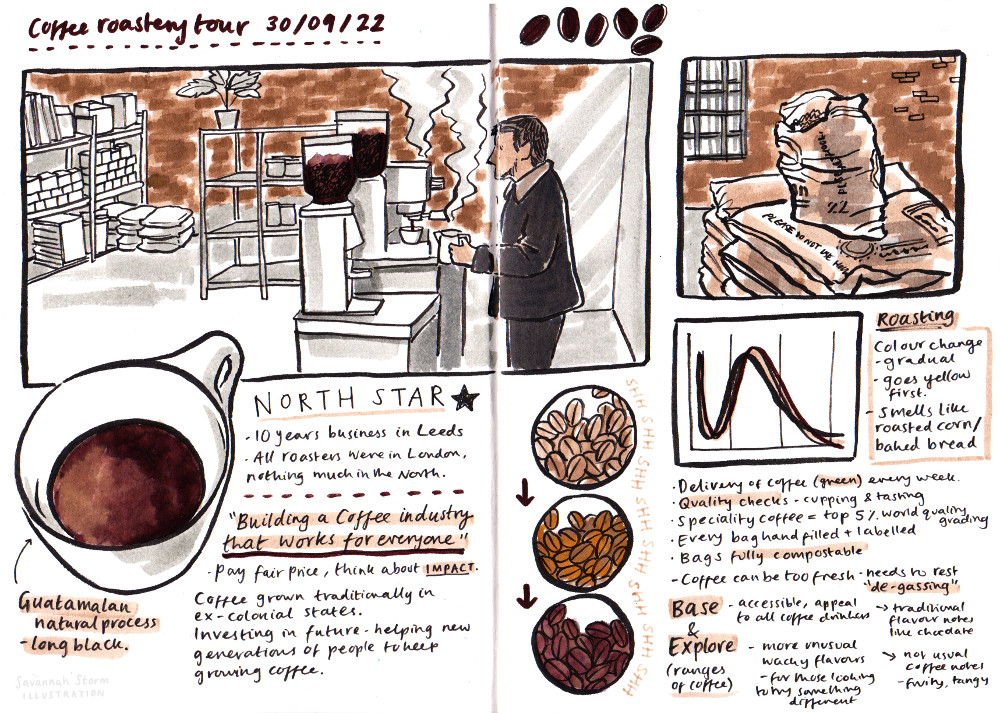 Coffee roastery tour 30/09/22
PLEASE DO NOT USE HOOKS
NORTH STAR
- 10 years business in Leeds
- All roasters were in London,
nothing much in the North.
"Building a Coffee industry
that works for everyone"
- Pay fair price, think about IMPACT.
Coffee grown traditionally in
ex-colonial states.
Investing in future - helping new
generations of people to keep
growing coffee.
Guatamalan
natural process
- long black.
Savannah Storm
ILLUSTRATION
SHH SHH SHH SHH SHH SHH SHH SHH
Roasting
Colour change
- gradual
- goes yellow
first.
- smells like
roasted corn/
baked bread
· Delivery of coffee (green) every week.
· Quality checks - cupping & tasting
· Speciality coffee = top 5% world quality
grading
· Every bag hand filled + labelled
· Bags fully compostable
- Coffee can be too fresh - needs to rest
"de-gassing"
Base - accessible, appeal
to all coffee drinkers
→ traditional
flavour notes
like chocolate
&
Explore - more unusual
wacky flavours
(ranges
of coffee)
- for those looking
to try something
different
→ not usual
coffee notes
- fruity, tangy